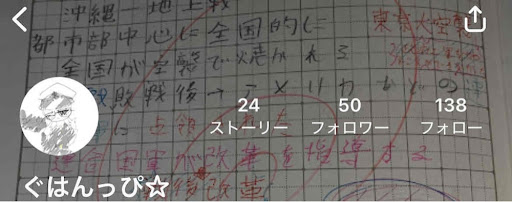 沖縄→地上戦
都市部中心に全国的に
東京大空襲
全国が空襲で焼かれる
敗戦後→アメリカなどの
24
50
138
ストーリー
フォロワー
フォロー
連合国軍が改革を指導する
改革
ぐはんっぴ☆